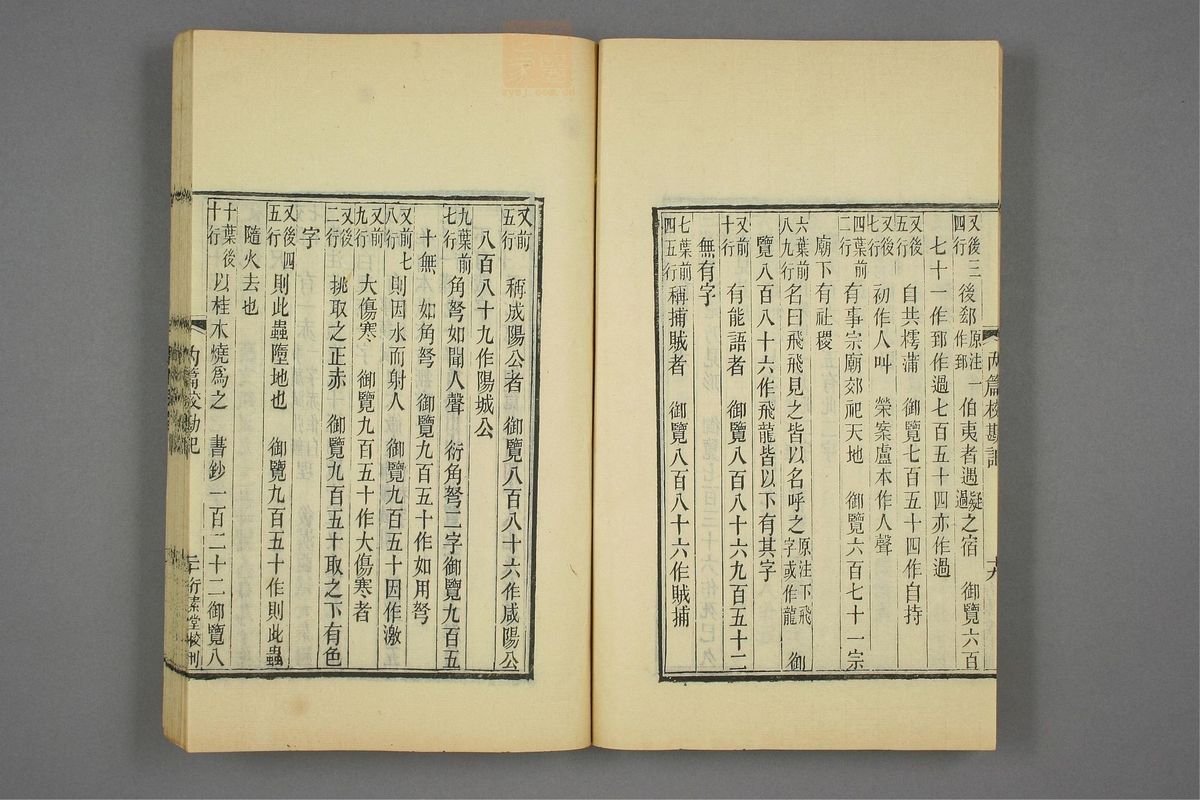 又後三四行 後郄原注一作郅 伯夷者遇疑過之宿 御覽六百
七十一作郅作過七百五十四亦作過
又後五行 自共樗蒲 御覽七百五十四作自持
又後七行 初作人叫 榮案盧本作人聲
四葉前二行 有事宗廟郊祀天地 御覽六百七十一宗
廟下有社稷
六葉前八九行 名曰飛飛見之皆以名呼之原注下飛字或作龍 御
覽八百八十六作飛龍皆以下有其字
又前十行 有能語者 御覽八百八十六九百五十二
無有字
七葉前四五行 稱捕賊者 御覽八百八十六作賊捕
内篇校勘記
又前五行 稱成陽公者 御覽八百八十六作咸陽公
八百八十九作陽城公
九葉前七行 角弩如聞人聲 衍角弩二字御覽九百五
十無 如角弩 御覽九百五十作如用弩
又前七八行 則因水而射人 御覽九百五十因作激
又前九行 大傷寒 御覽九百五十作大傷寒者
又後二行 挑取之正赤 御覽九百五十取之下有色
字
又後四五行 則此蟲墮地也 御覽九百五十作則此蟲
隨火去也
十葉後十行 以桂木燒爲之 書鈔一百二十二御覽八
内篇校勘記
平行素堂校刊